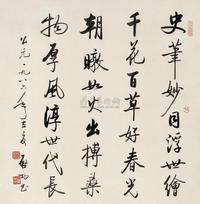 史筆妙同浮世繪
千花百草好春光
朝暾如火出榑桑
物厚風淳世代長
公元一九八六年立夏 啟功書